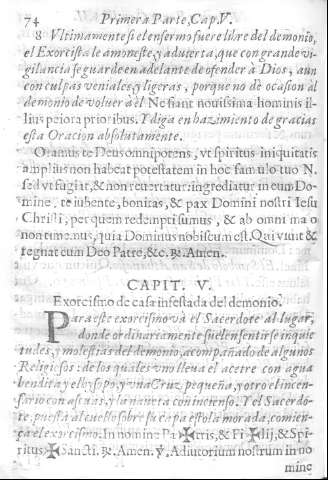 74 Primera Parte, Cap. V.
8 Vltimamente si el enfermo fuere libre del demonio,
el Exorcista le amoneste, y aduierta, que con grande vi-
gilancia se guarde en adelante de ofender à Dios, aun
con culpas veniales, y ligeras, porque no dè ocasion al
demonio de voluer à èl Ne fiant nouissima hominis il-
lius peiora prioribus. Y diga en hazimiento de gracias
esta Oracion absolutamente.
Oramus te Deus omnipotens, vt spiritus iniquitatis
amplius non habeat potestatem in hoc famulo tuo N.
sed vt fugiat, & non reuertatur: ingrediatur in eum Do-
mine, te iubente, bonitas, & pax Domini nostri Iesu
Christi, per quem redempti sumus, & ab omni malo
non timemus, quia Dominus nobiscum est. Qui viuit &
regnat cum Deo Patre, &c. ꝶ. Amen.
CAPIT. V.
Exorcismo de casa infestada del demonio.
Para este exorcismo và el Sacerdote al lugar,
donde ordinariamente suelen sentirse inquie
tudes, y molestias del demonio, acompañado de algunos
Religiosos: de los quales vno lleua el acetre con agua
bendita y el hysopo, y vna Cruz pequeña, y otro el incen-
sario con ascuas, y la naueta con incienso. Y el Sacerdo-
te, puesta al cuello sobre la capa estola morada, comien-
ça el exorcismo. In nomine Pa✠tris, & Fi✠lij, & Spi-
ritus ✠ Sancti. ꝶ. Amen. ℣. Adiutorium nostrum in no
mine